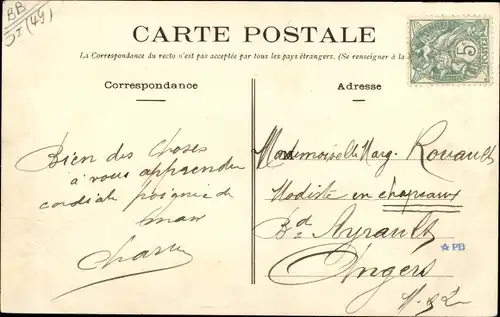 BB
(49)
CARTE POSTALE
La Correspondance du recto n'est pas acceptée par tous les pays étrangers. (Se renseigner à la
Correspondance
Adresse
5
Bien des choses
à vous apprendre
cordiale poignée de
main
Mademoiselle Marg. Rouault
Modiste en chapeaux
Bd Ayrault
Angers
M. & L.
PB